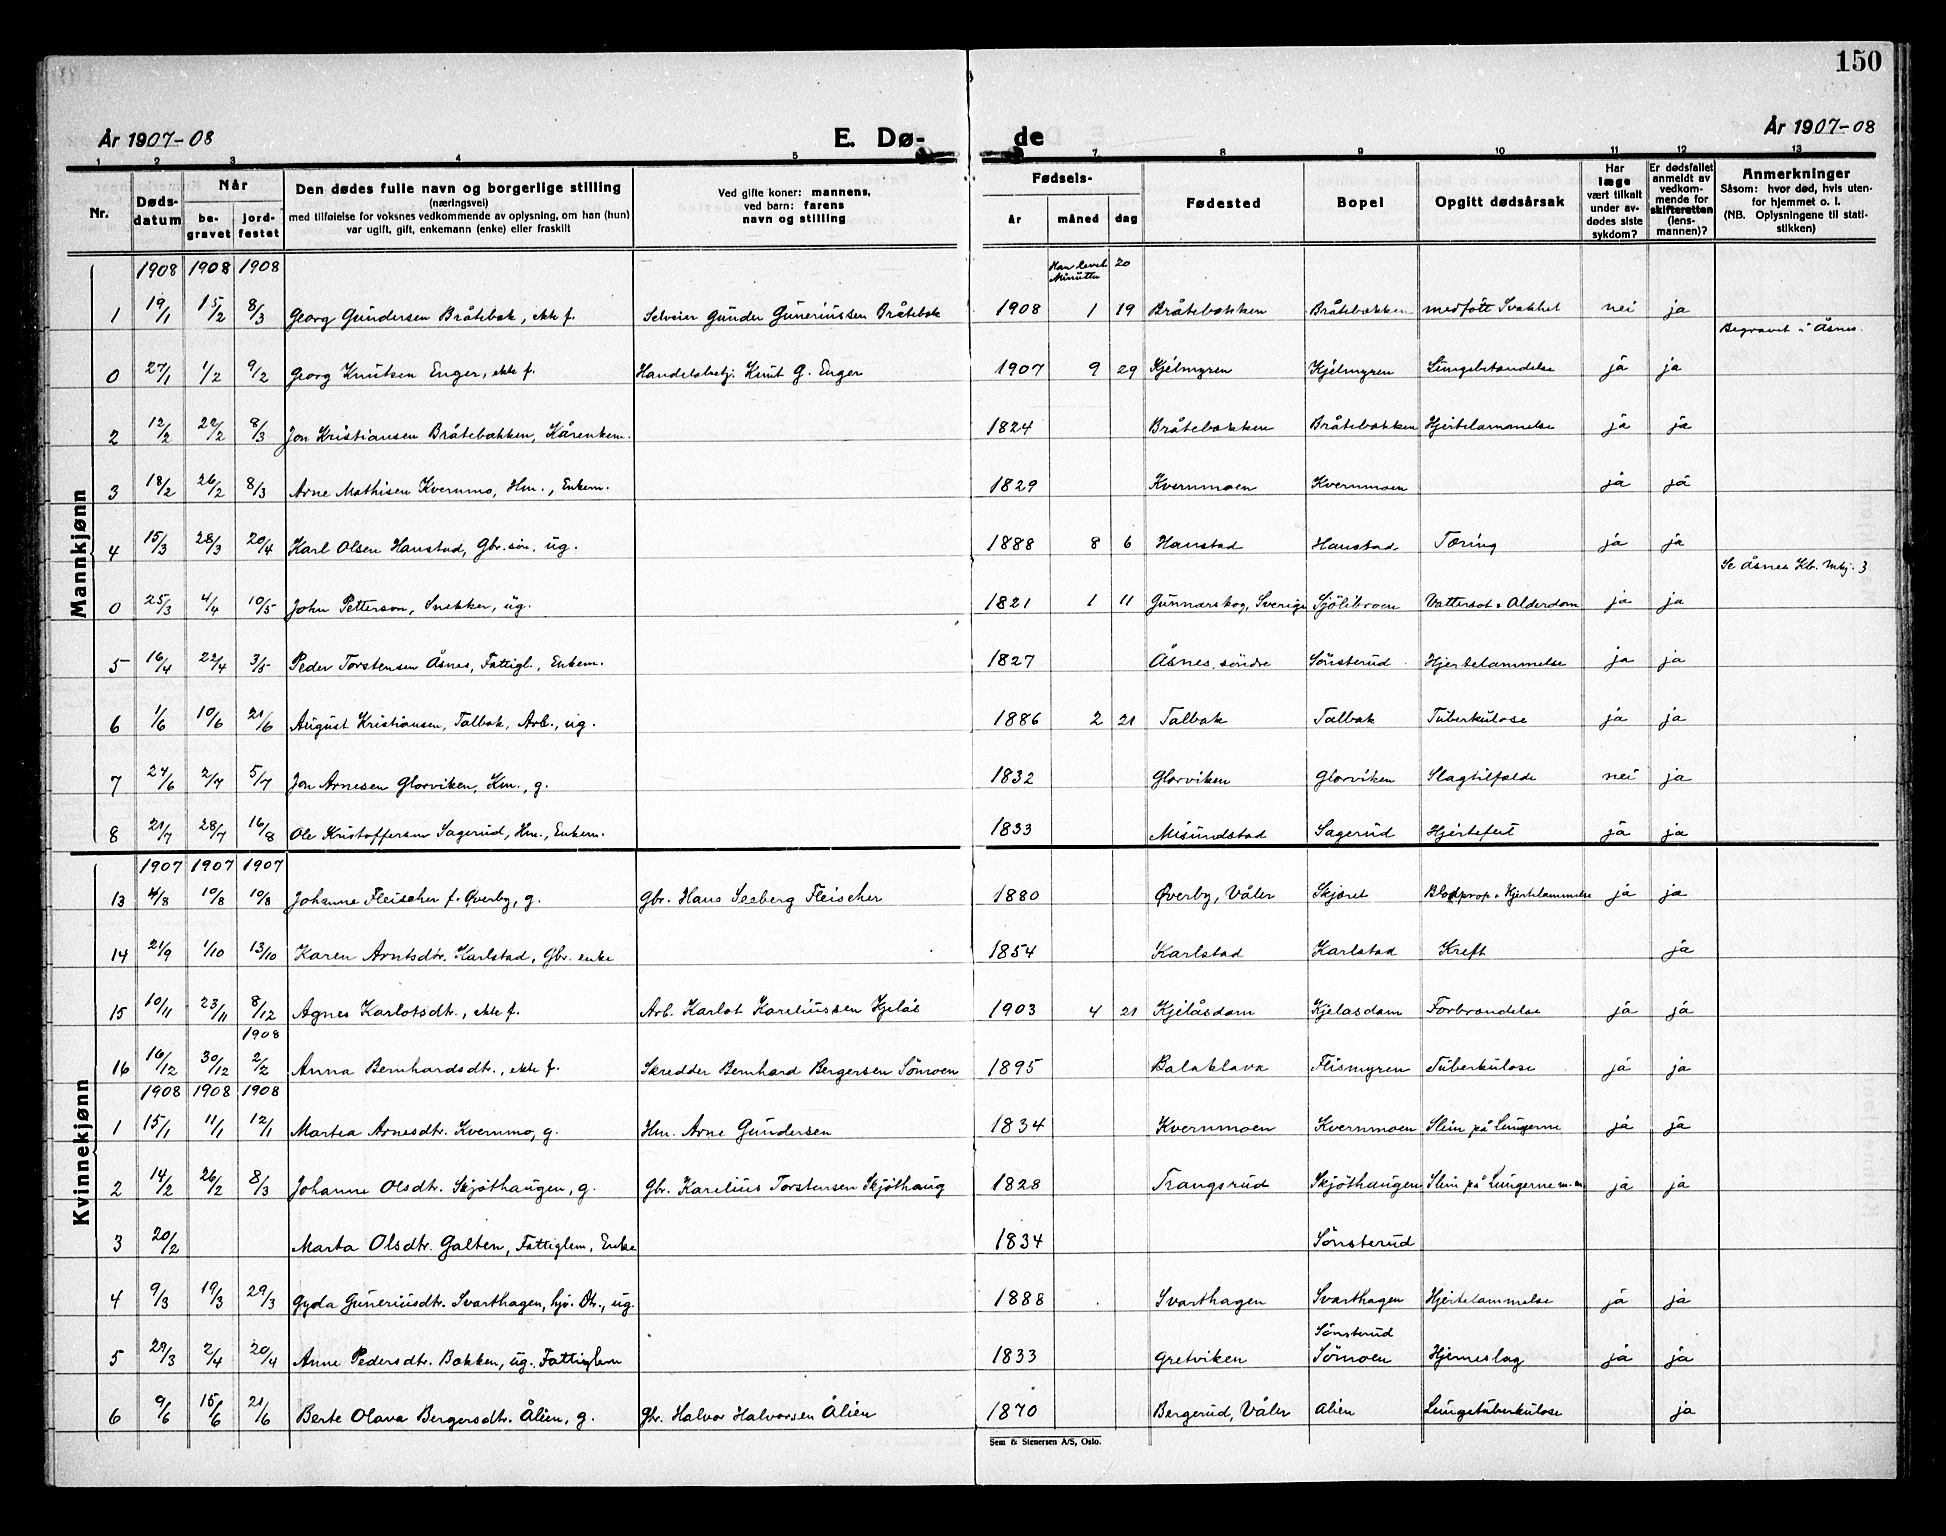 150
År 1907-08 E. Dø- de År 1907-08
1 2 3 4 5 7 8 9 10 11 12 13
Nr. Døds-datum Når be-gravet jord-festet Den dødes fulle navn og borgerlige stilling (næringsvei) med tilføielse for voksnes vedkommende av oplysning, om han (hun) var ugift, gift, enkemann (enke) eller fraskilt Ved gifte koner: mannens, ved barn: farens navn og stilling Fødsels- år måned dag Fødested Bopel Opgitt dødsårsak Har læge vært tilkalt under av-dødes siste sykdom? Er dødsfallet anmeldt av vedkom-mende for skifteretten (lens-mannen)? Anmerkninger Såsom: hvor død, hvis uten-for hjemmet o. l. (NB. Oplysningene til stati-stikken)
Mannkjønn
1908 1908 1908 Han levet 20 Minutter
1 19/1 15/2 8/3 Georg Gundersen Bråtebæk, ekte f. Selveier Gunder Guneriussen Bråtebæk 1908 1 19 Bråtebækken Bråtebækken medfött Svakhet nei ja
Begravet i Åsnes.
0 27/1 1/2 9/2 Georg Knutsen Enger, ekte f. Handelsbetj. Knut G. Enger 1907 9 29 Kjelmyren Kjelmyren Lungebetændelse ja ja
2 12/2 22/2 8/3 Jon Kristiansen Bråtebækken, Kårenkem. 1824 Bråtebækken Bråtebækken Hjertelammelse ja ja
3 18/2 26/2 8/3 Arne Mathisen Kvernmo, Hm., Enkem. 1829 Kvernmoen Kvernmoen ja ja
4 15/3 28/3 20/4 Karl Olsen Hanstad, Gbr. søn, ug. 1888 8 6 Hanstad Hanstad Tæring ja ja
Se Åsnes Kb. Mkj. 3
0 25/3 4/4 10/5 John Petterson, Snekker, ug. 1821 1 11 Gunnarskog, Sverige Sjölibroen Vattersot o Alderdom ja ja
5 16/4 22/4 3/5 Peder Torstensen Åsnes, Fattigl., Enkem. 1827 Åsnes, söndre Sönsterud Hjertelammelse ja ja
6 1/6 10/6 21/6 August Kristiansen, Talbak, Arb., ug. 1886 2 21 Talbak Talbak Tuberkulose ja ja
7 24/6 2/7 5/7 Jon Arnesen Glorviken, Km., g. 1832 Glorviken Glorviken Slagtilfælde nei ja
8 21/7 28/7 16/8 Ole Kristoffersen Sagerud, Hm., Enkem. 1833 Misundstad Sagerud Hjertefeit ja ja
Kvinnekjønn
1907 1907 1907
13 4/8 10/8 10/8 Johanne Fleischer f. Øverby, g. Gbr. Hans Seeberg Fleischer 1880 Øverby, Våler Skjæret Blodprop o Hjertelammelse ja ja
14 21/9 1/10 13/10 Karen Arntsdtr. Karlstad, Gbr. enke 1854 Karlstad Karlstad Kreft ja
15 10/11 23/11 8/12 Agnes Karlotsdtr., ekte f. Arb. Karlot Kareliussen Kjelås 1903 4 21 Kjelåsdam Kjelasdam Forbrændelse ja ja
1908
16 16/12 30/12 2/2 Anna Bernhardsdtr., ekte f. Skredder Bernhard Bergersen Sömoen 1895 Balaklava Flismyren Tuberkulose ja ja
1908 1908 1908
1 15/1 11/1 12/1 Martea Arnesdtr. Kvernmo, g. Hm. Arne Gundersen 1834 Kvernmoen Kvernmoen Slim på Lungerne ja ja
2 14/2 26/2 8/3 Johanne Olsdtr. Skjöthaugen, g. Gbr. Karelius Torstensen Skjöthaug 1828 Trangsrud Skjöthaugen Slim på Lungerne m.m ja ja
3 20/2 Marta Olsdtr. Galten, Fattiglem, Enke 1834 Sönsterud
4 9/3 19/3 29/3 Gyda Guneriusdtr. Svarthagen, hjv. Dtr., ug. 1888 Svarthagen Svarthagen Hjertelammelse ja ja
Sönsterud
5 29/3 2/4 20/4 Anne Pedersdtr. Bakken, ug. Fattiglem 1833 Gretviken Sömoen Hjerneslag ja ja
6 9/6 15/6 21/6 Berte Olava Bergersdtr. Ålien, g. Gbr. Halvor Halvorsen Ålien 1870 Bergerud, Våler Alien Lungetuberkulose ja
Sem & Stenersen A/S, Oslo.